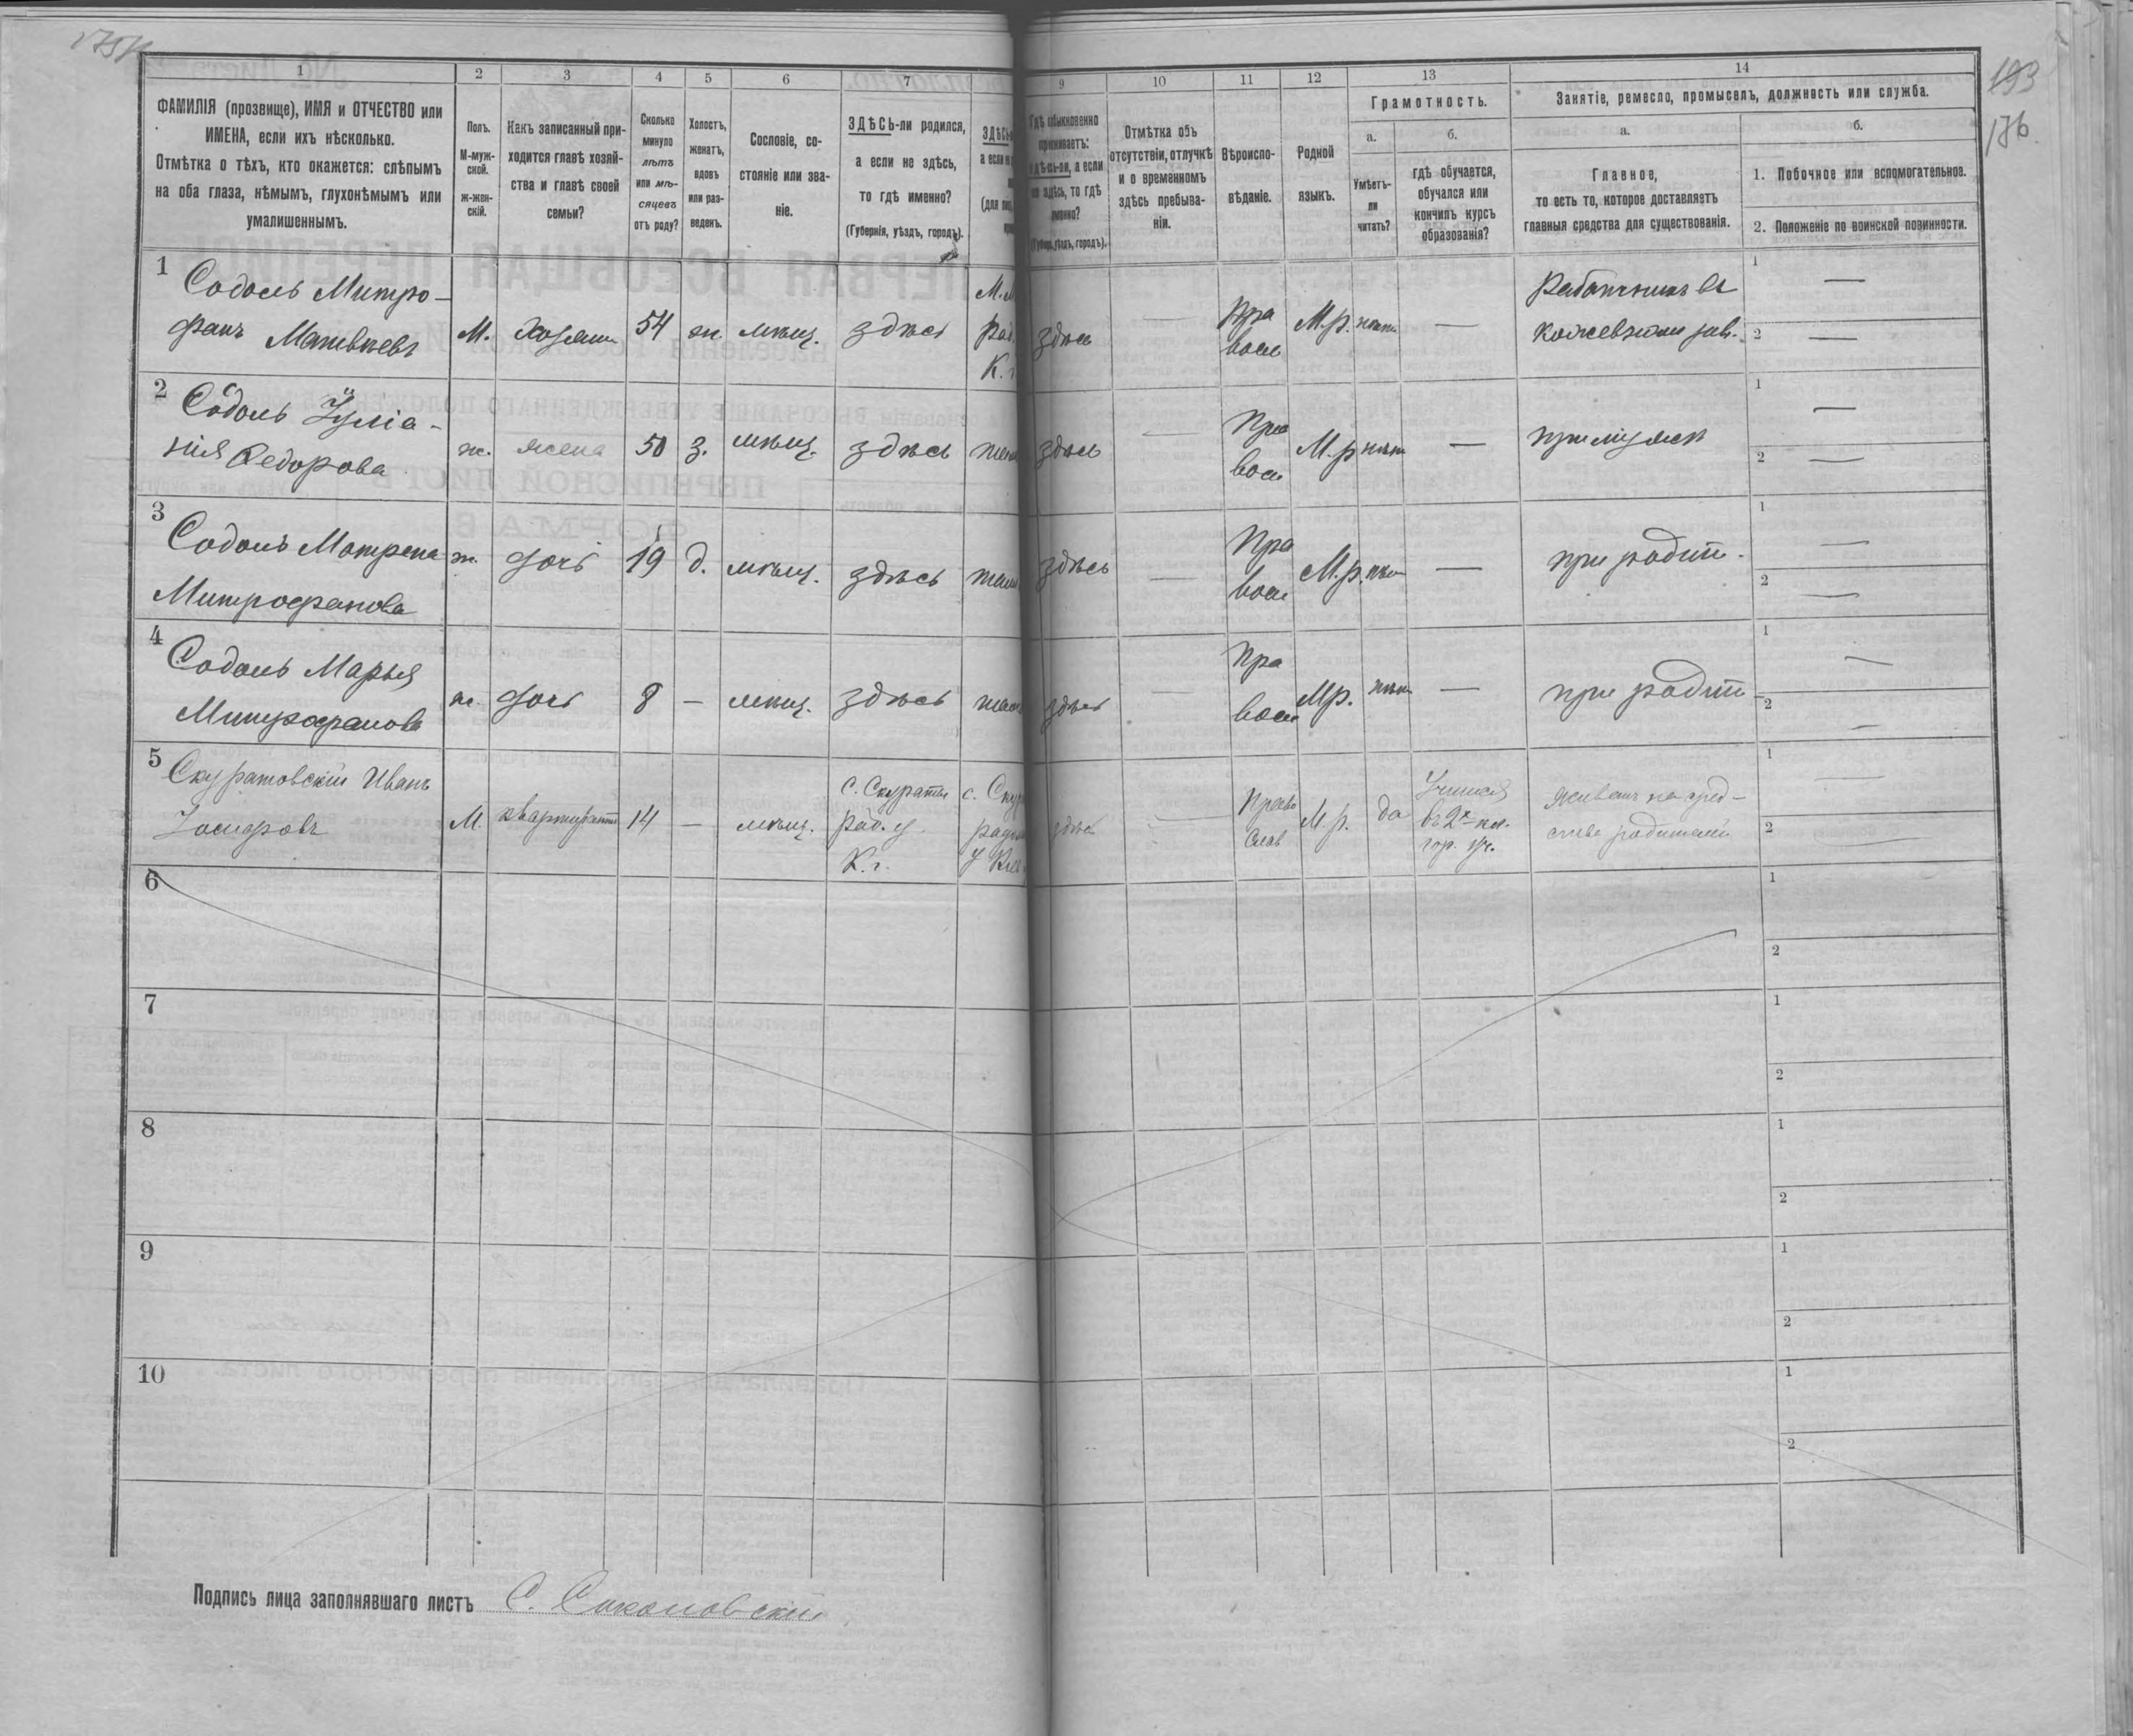 1
2
3
4
5
6
7
9
10
11
12
13
14
ФАМИЛІЯ (прозвище), ИМЯ и ОТЧЕСТВО или
ИМЕНА, если ихъ нѣсколько.
Отмѣтка о тѣхъ, кто окажется: слѣпымъ
на оба глаза, нѣмымъ, глухонѣмымъ или
умалишеннымъ.
Полъ.
М-муж-
ской.
ж-жен-
скій.
Какъ записанный при-
ходится главѣ хозяй-
ства и главѣ своей
семьи?
Сколько
минуло
лѣтъ
или мѣ-
сяцевъ
отъ роду?
Холостъ,
женатъ,
вдовъ
или раз-
веденъ.
Сословіе, со-
стояніе или зва-
ніе.
ЗДѢСЬ-ли родился,
а если не здѣсь,
то гдѣ именно?
(Губернія, уѣздъ, городъ).
Гдѣ обыкновенно
проживаетъ:
здѣсь-ли, а если
не здѣсь, то гдѣ
именно?
(Губерн., уѣздъ, городъ).
Отмѣтка объ
отсутствіи, отлучкѣ
и о временномъ
здѣсь пребыва-
ніи.
Вѣроиспо-
вѣданіе.
Родной
языкъ.
Грамотность.
а.
Умѣетъ-
ли
читать?
б.
гдѣ обучается,
обучался или
кончилъ курсъ
образованія?
Занятіе, ремесло, промыселъ, должность или служба.
а.
Главное,
то есть то, которое доставляетъ
главныя средства для существованія.
б.
1. Побочное или вспомогательное.
2. Положеніе по воинской повинности.
193
176.
1
Содоль Митро-
фанъ Матвѣевъ
М. Хозяин 54 ж. мѣщ. здѣсь
здѣсь — Пра
вос М.р. нѣт —
Работникъ въ
кожевенном зав.
1 —
2 —
2
Содоль Іуліа-
нія Федорова
ж. жена 50 з. мѣщ. здѣсь
здѣсь — Пра
вос М.р нѣт —
при мужѣ
1 —
2 —
3
Содоль Матрена
Митрофанова
ж. дочь 19 д. мѣщ. здѣсь
здѣсь — Пра
вос М.р. нѣт —
при родит.
1 —
2 —
4
Содоль Марья
Митрофанова
ж. дочь 8 — мѣщ. здѣсь
здѣсь — Пра
вос М.р. нѣт —
при родит
1 —
2 —
5
Скуратовскій Иванъ
М. квартирантъ 14 — мѣщ.
с. Скураты
рад. у.
К. г.
здѣсь — Право
слав М.р. да
Учится
въ 2х кл.
гор. уч.
Живетъ на сред-
ства родителей
1 —
2 —
6
1
2
7
1
2
8
1
2
9
1
2
10
1
2
Подпись лица заполнявшаго листъ